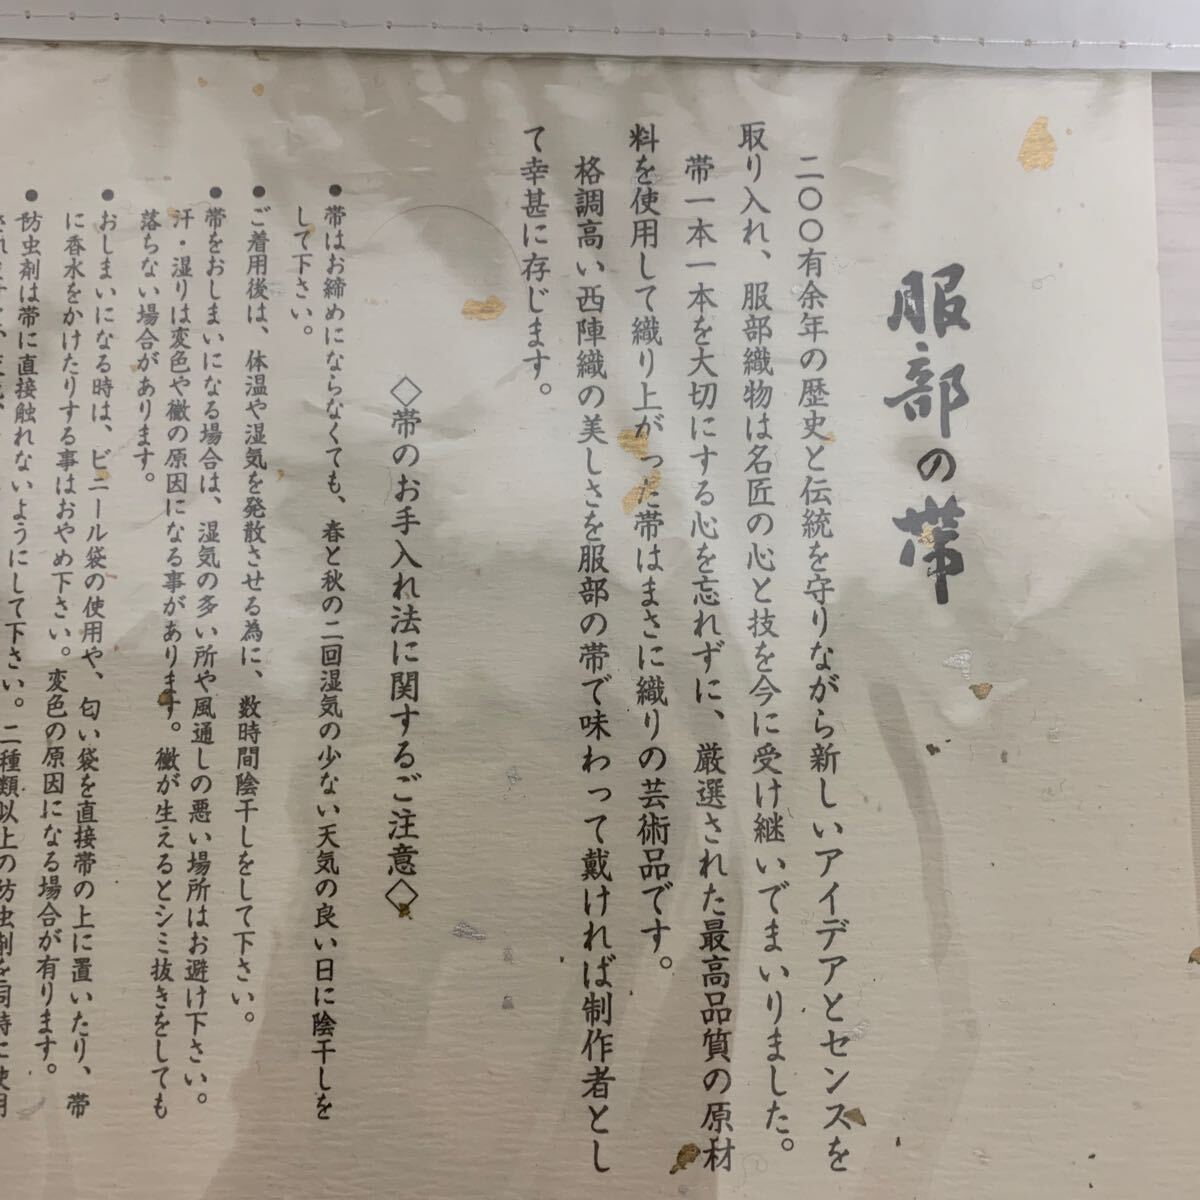 服部の帯
二〇〇有余年の歴史と伝統を守りながら新しいアイデアとセンスを
取り入れ、服部織物は名匠の心と技を今に受け継いでまいりました。
帯一本一本を大切にする心を忘れずに、厳選された最高品質の原材
料を使用して織り上がった帯はまさに織りの芸術品です。
格調高い西陣織の美しさを服部の帯で味わって戴ければ制作者とし
て幸甚に存じます。
◇帯のお手入れ法に関するご注意◇
●帯はお締めにならなくても、春と秋の二回湿気の少ない天気の良い日に陰干しを
して下さい。
●ご着用後は、体温や湿気を発散させる為に、数時間陰干しをして下さい。
●帯をおしまいになる場合は、湿気の多い所や風通しの悪い場所はお避け下さい。
汗・湿りは変色や黴の原因になる事があります。黴が生えるとシミ抜きをしても
落ちない場合があります。
●おしまいになる時は、ビニール袋の使用や、匂い袋を直接帯の上に置いたり、帯
に香水をかけたりする事はおやめ下さい。変色の原因になる場合が有ります。
●防虫剤は帯に直接触れないようにして下さい。二種類以上の防虫剤を同時に使用